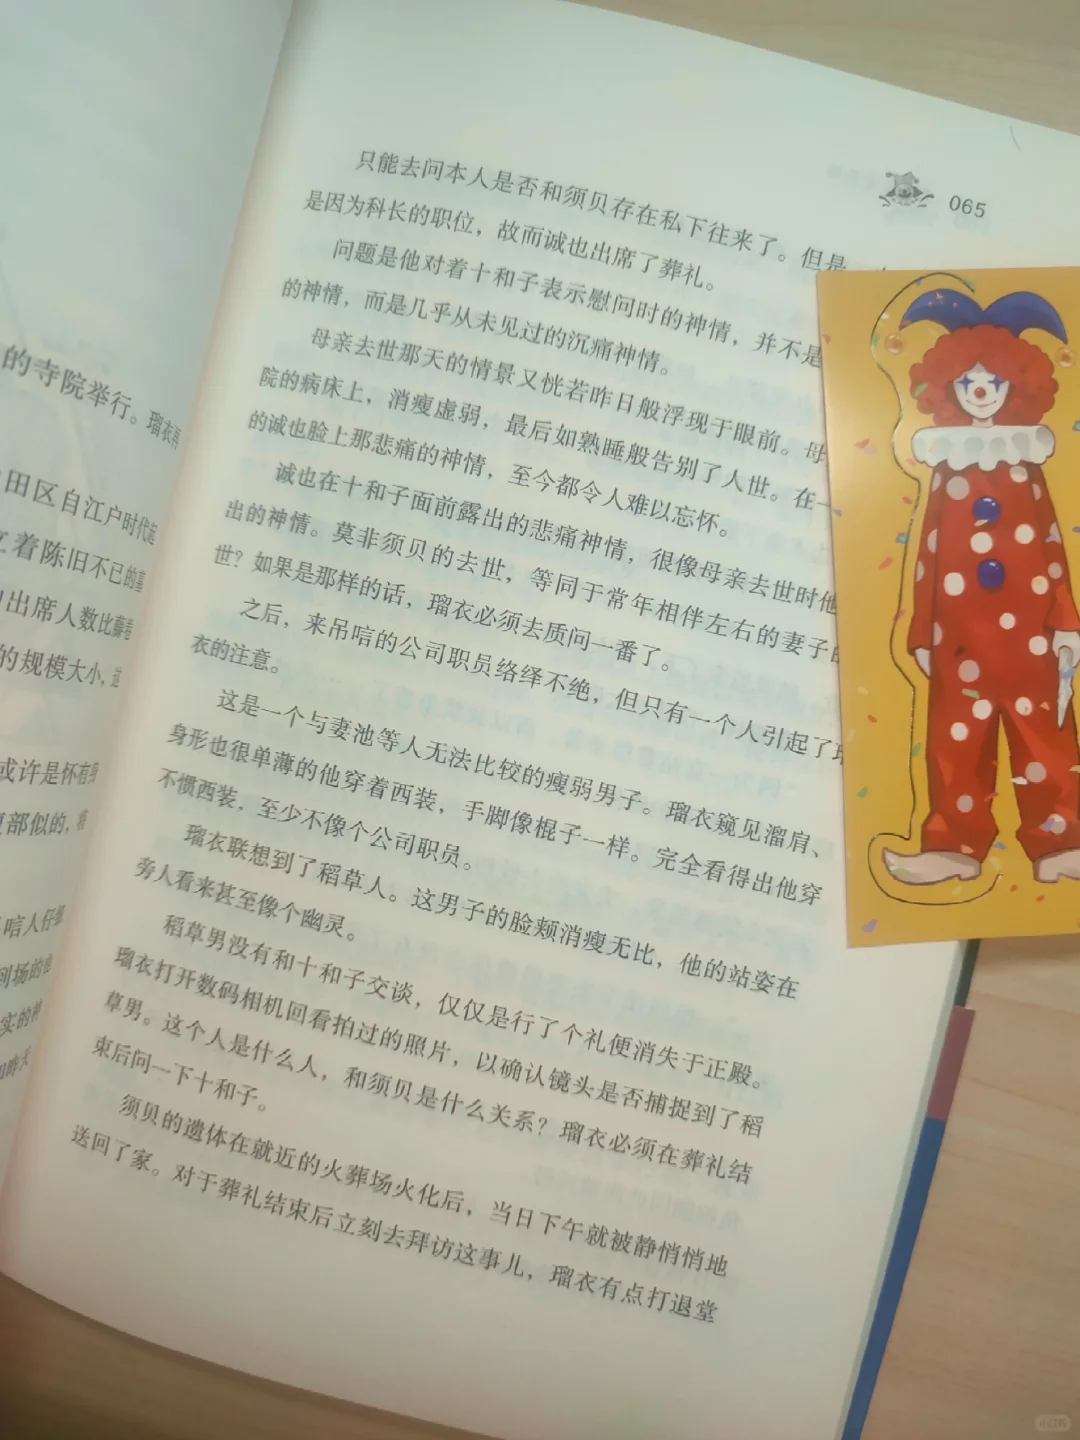 的寺院举行。瑠衣再
田区自江户时代起
着陈旧不已的墓
出席人数比
的规模大小,
或许是怀有
部似的,
唁人仔细
回场的
实的神
065
只能去问本人是否和须贝存在私下往来了。但是
是因为科长的职位,故而诚也出席了葬礼。
问题是他对着十和子表示慰问时的神情,并不是
的神情,而是几乎从未见过的沉痛神情。
母亲去世那天的情景又恍若昨日般浮现于眼前。母
院的病床上,消瘦虚弱,最后如熟睡般告别了人世。在一
的诚也脸上那悲痛的神情,至今都令人难以忘怀。
诚也在十和子面前露出的悲痛神情,很像母亲去世时他
出的神情。莫非须贝的去世,等同于常年相伴左右的妻子的
世?如果是那样的话,瑠衣必须去质问一番了。
之后,来吊唁的公司职员络绎不绝,但只有一个人引起了瑠
衣的注意。
这是一个与妻池等人无法比较的瘦弱男子。瑠衣窥见溜肩、
身形也很单薄的他穿着西装,手脚像棍子一样。完全看得出他穿
不惯西装,至少不像个公司职员。
瑠衣联想到了稻草人。这男子的脸颊消瘦无比,他的站姿在
旁人看来甚至像个幽灵。
稻草男没有和十和子交谈,仅仅是行了个礼便消失于正殿。
瑠衣打开数码相机回看拍过的照片,以确认镜头是否捕捉到了稻
草男。这个人是什么人,和须贝是什么关系?瑠衣必须在葬礼结
束后问一下十和子。
须贝的遗体在就近的火葬场火化后,当日下午就被静悄悄地
送回了家。对于葬礼结束后立刻去拜访这事儿,瑠衣有点打退堂
小红书